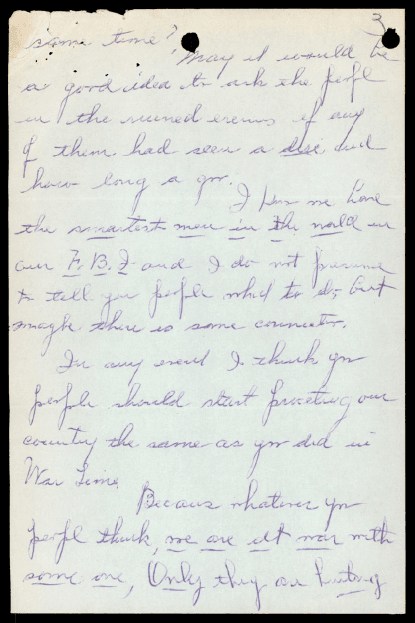 3
some time? May it would be
a good idea to ask the peopl
in the ruined areas if any
of them had seen a disc and
how long a go.
I know we have
the smartest men in the world in
our F.B.I and I do not presume
to tell you people what to do, but
maybe there is some connection.
In any event I think you
people should start protecting our
country the same as you did in
War Time.
Becaus whatever you
peopl think, we are at war with
some one, Only they are hitting